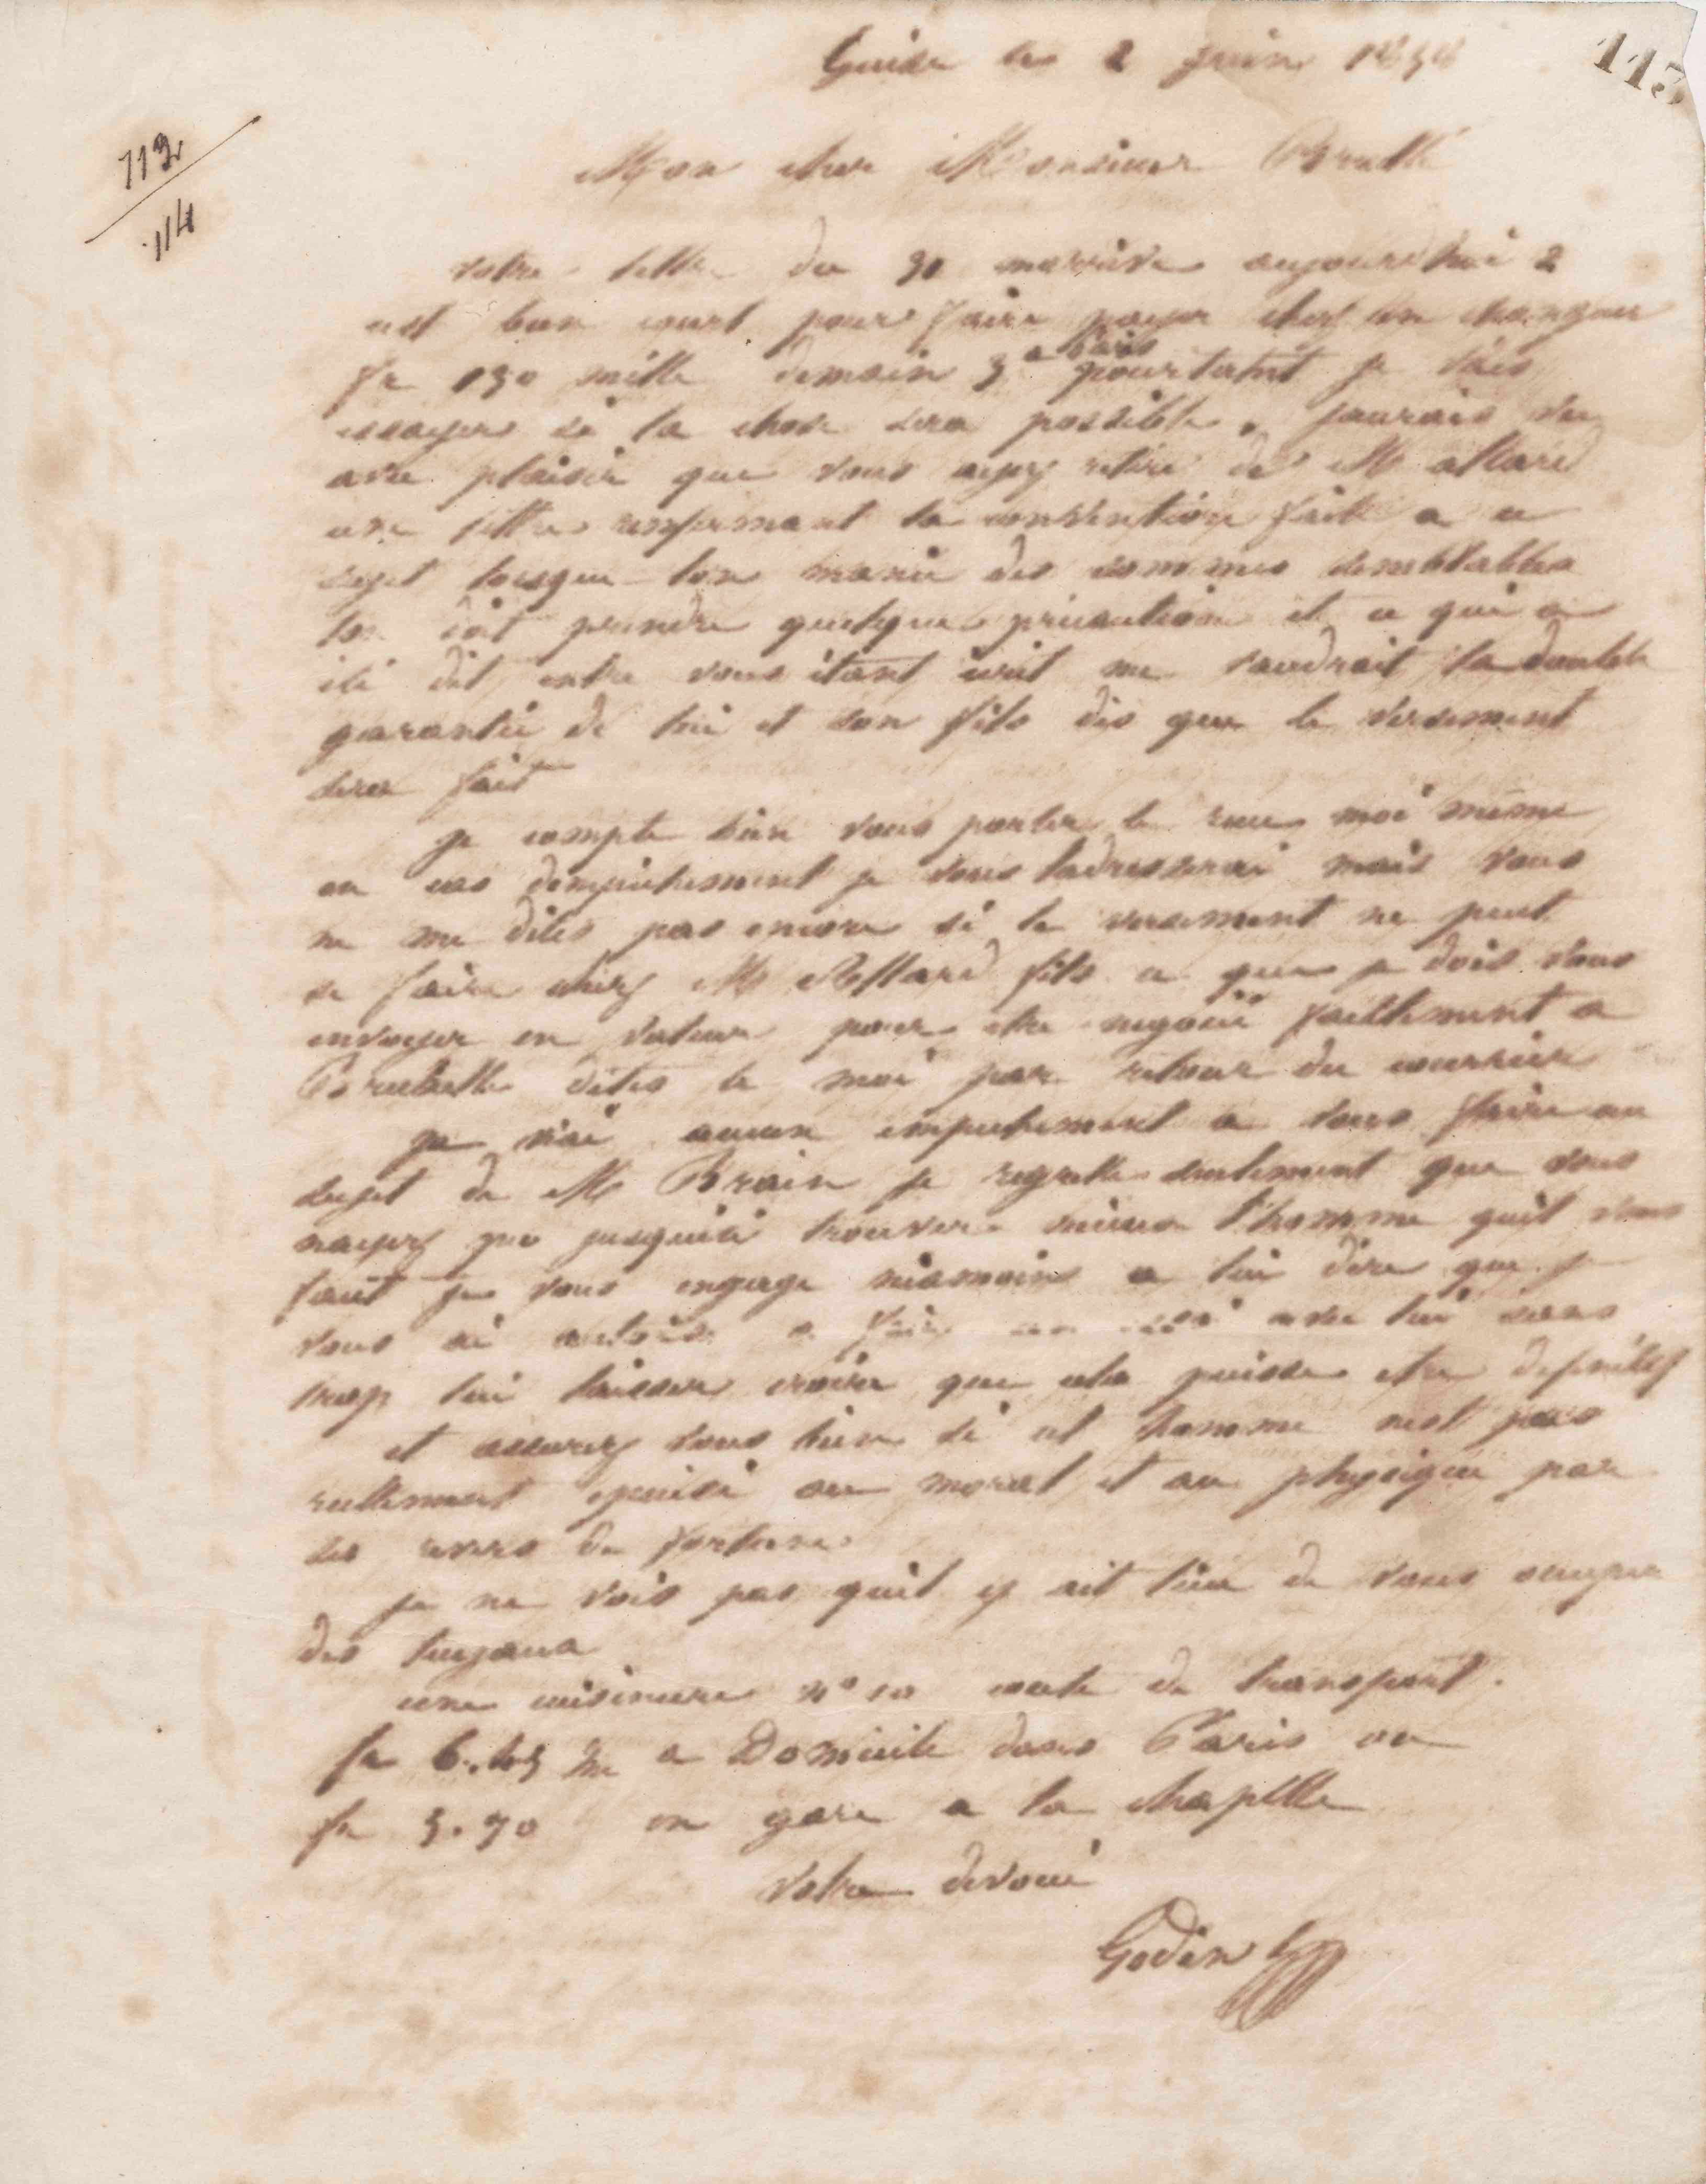 113
112
114
Guise le 2 juin 185
Mon cher Monsieur Brullé
votre lettre du 30 marrive aujourdhui 2
est bien court pour faire payer chez un changeur
fr 150 mille demain 3 a Paris pourtant je vais
essayer si la chose sera possible. jaurais vu
avec plaisir que vous ayez retiré de M allard
une lettre renfermant la convention faite a ce
sujet lorsque lon manie des sommes semblables
lon doit prendre quelque précaution et ce qui a
été dit entre vous étant écrit me vaudrait la double
garantie de lui et son fils dès que le versement
sera fait
je compte bien vous porter le reçu moi même
en cas dempêchement je vous ladresserai mais vous
ne me dites pas encore si le versement ne peut
se faire chez M Allard fils a que je dois vous
envoyer en valeur pour etre négocié facilement a
Bruxelles dites le moi par retour du courrier
je n'ai aucun empechement a vous faire au
sujet de M Brain je regrette seulement que vous
nayez pu jusquici trouver mieux l'homme quil vous
faut je vous engage néamoins a lui dire que je
vous ai autorisé a faire un essai avec lui sans
trop lui laisser croire que cela puisse etre definitif
et assurez vous bien si cet homme nest pas
reellement épuisé au moral et au physique par
ses revers de fortune
je ne vois pas quil y ait lieu de vous occuper
des tuyaux
une cuisiniere n° 10 coute de transport
fr 6.45 a Domicile dans Paris ou
fr 5.70 en gare a la chapelle
votre devoué
Godin